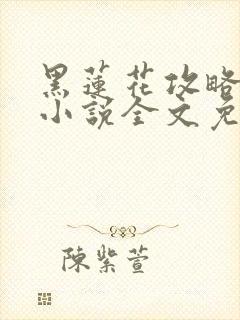 黑蓮花攻略
小說全文免
陳紫萱